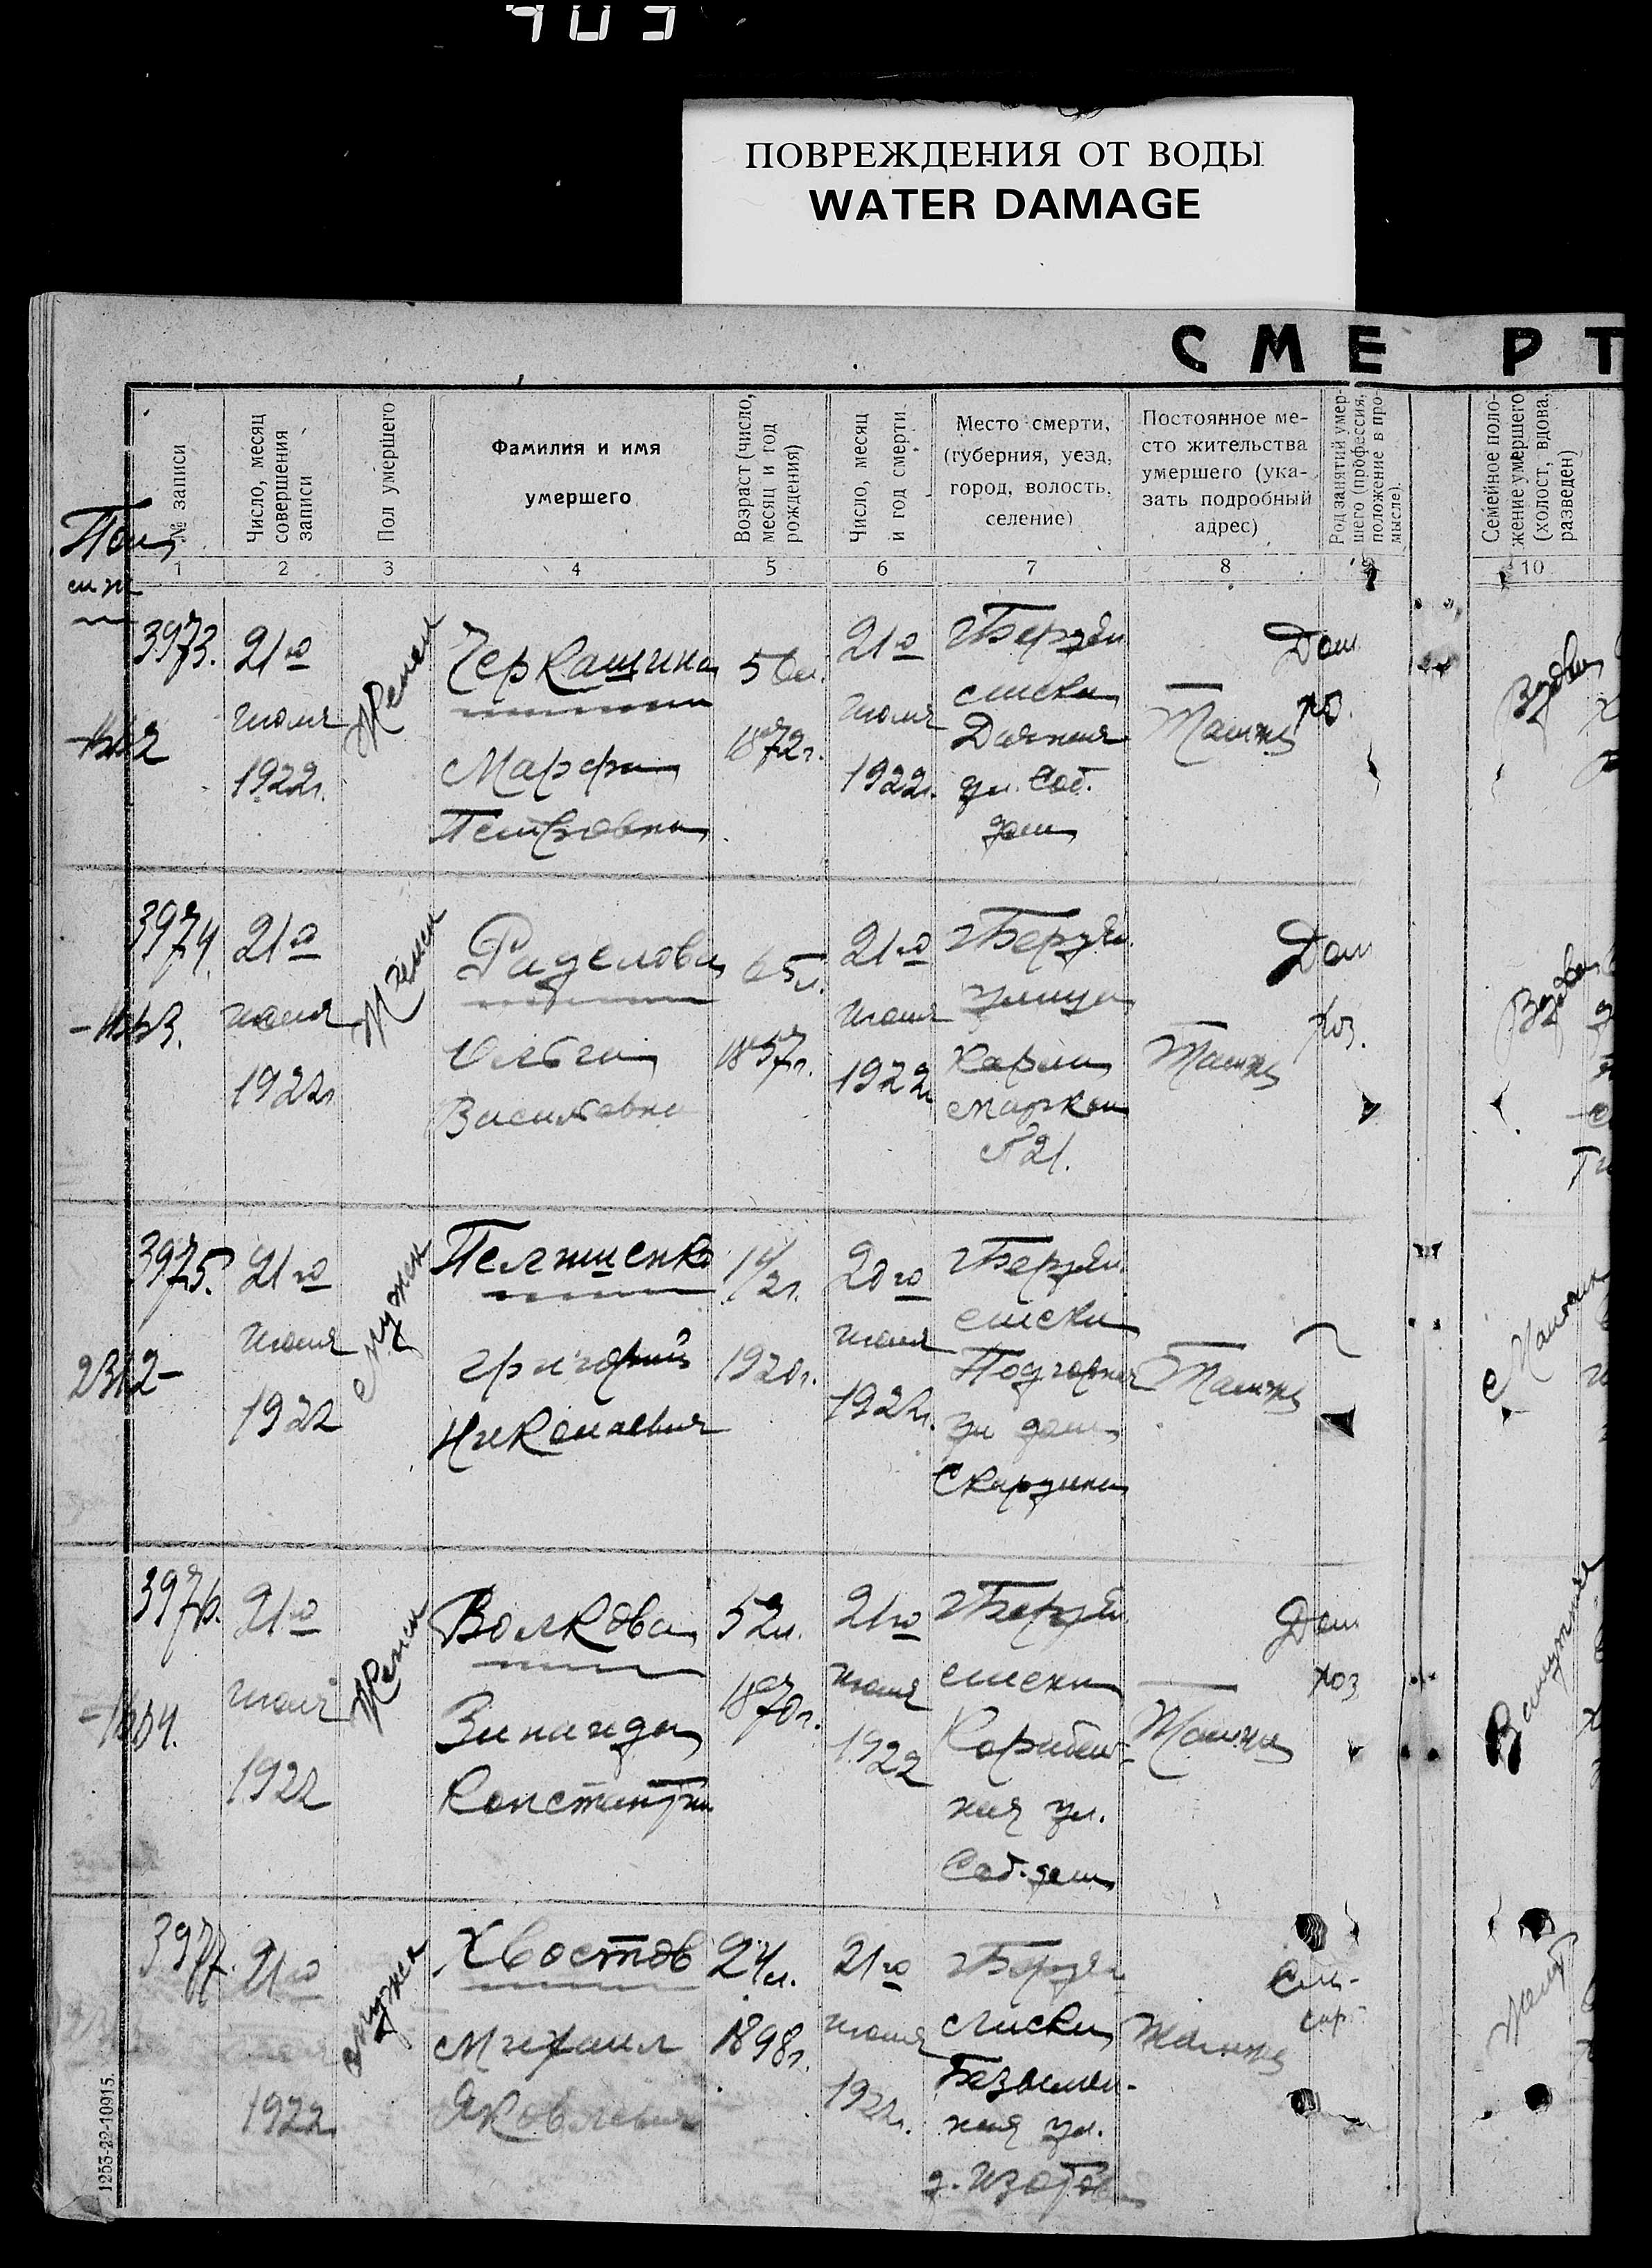 ПОВРЕЖДЕНИЯ ОТ ВОДЫ
WATER DAMAGE
СМЕ РТ
№ записи
Число, месяц
совершения
записи
Пол умершего
Фамилия и имя
умершего
Возраст (число,
месяц и год
рождения)
Число, месяц
и год смерти
Место смерти,
(губерния, уезд,
город, волость,
селение)
Постоянное ме-
сто жительства
умершего (ука-
зать подробный
адрес)
Род занятий умер-
шего (профессия,
положение в про-
мысле).
Семейное поло-
жение умершего
(холост, вдова,
разведен)
1 2 3 4 5 6 7 8 9 10
3973.
21го
июля
1922г.
Женск
Черкашина
Марфа
Петровна
50л.
1872г.
21го
июля
1922г.
г Бердян
ул. Соб.
дом
Там же
Дом
хо.
Вдова
3974.
21го
июля
1922г
Женск
Ольга
Васильевна
65л.
1857г.
21го
июля
1922
г Бердян.
улица
Карла
Маркса
№ 21.
Там же
Дом
хоз.
Вдова
3975.
21го
июля
1922
Мужск
Григорий
Николаевич
1920г.
20го
июля
1922г.
г Бердян.
ул дом
Там же
3976.
21го
июля
1922
Женск
Волкова
Зинаида
Константин
52л.
1870г.
21го
июля
1922
г Бердян
ная ул.
Соб. дом
Там же
Дом
хоз
Замужняя
3977.
21го
1922
Мужск
Хвостов
Михаил
Яковлевич
24л.
1898г.
21го
июля
1922г.
г Бердян
Безымен-
ная ул.
д. Изотова
Там же
1253-22-10915.